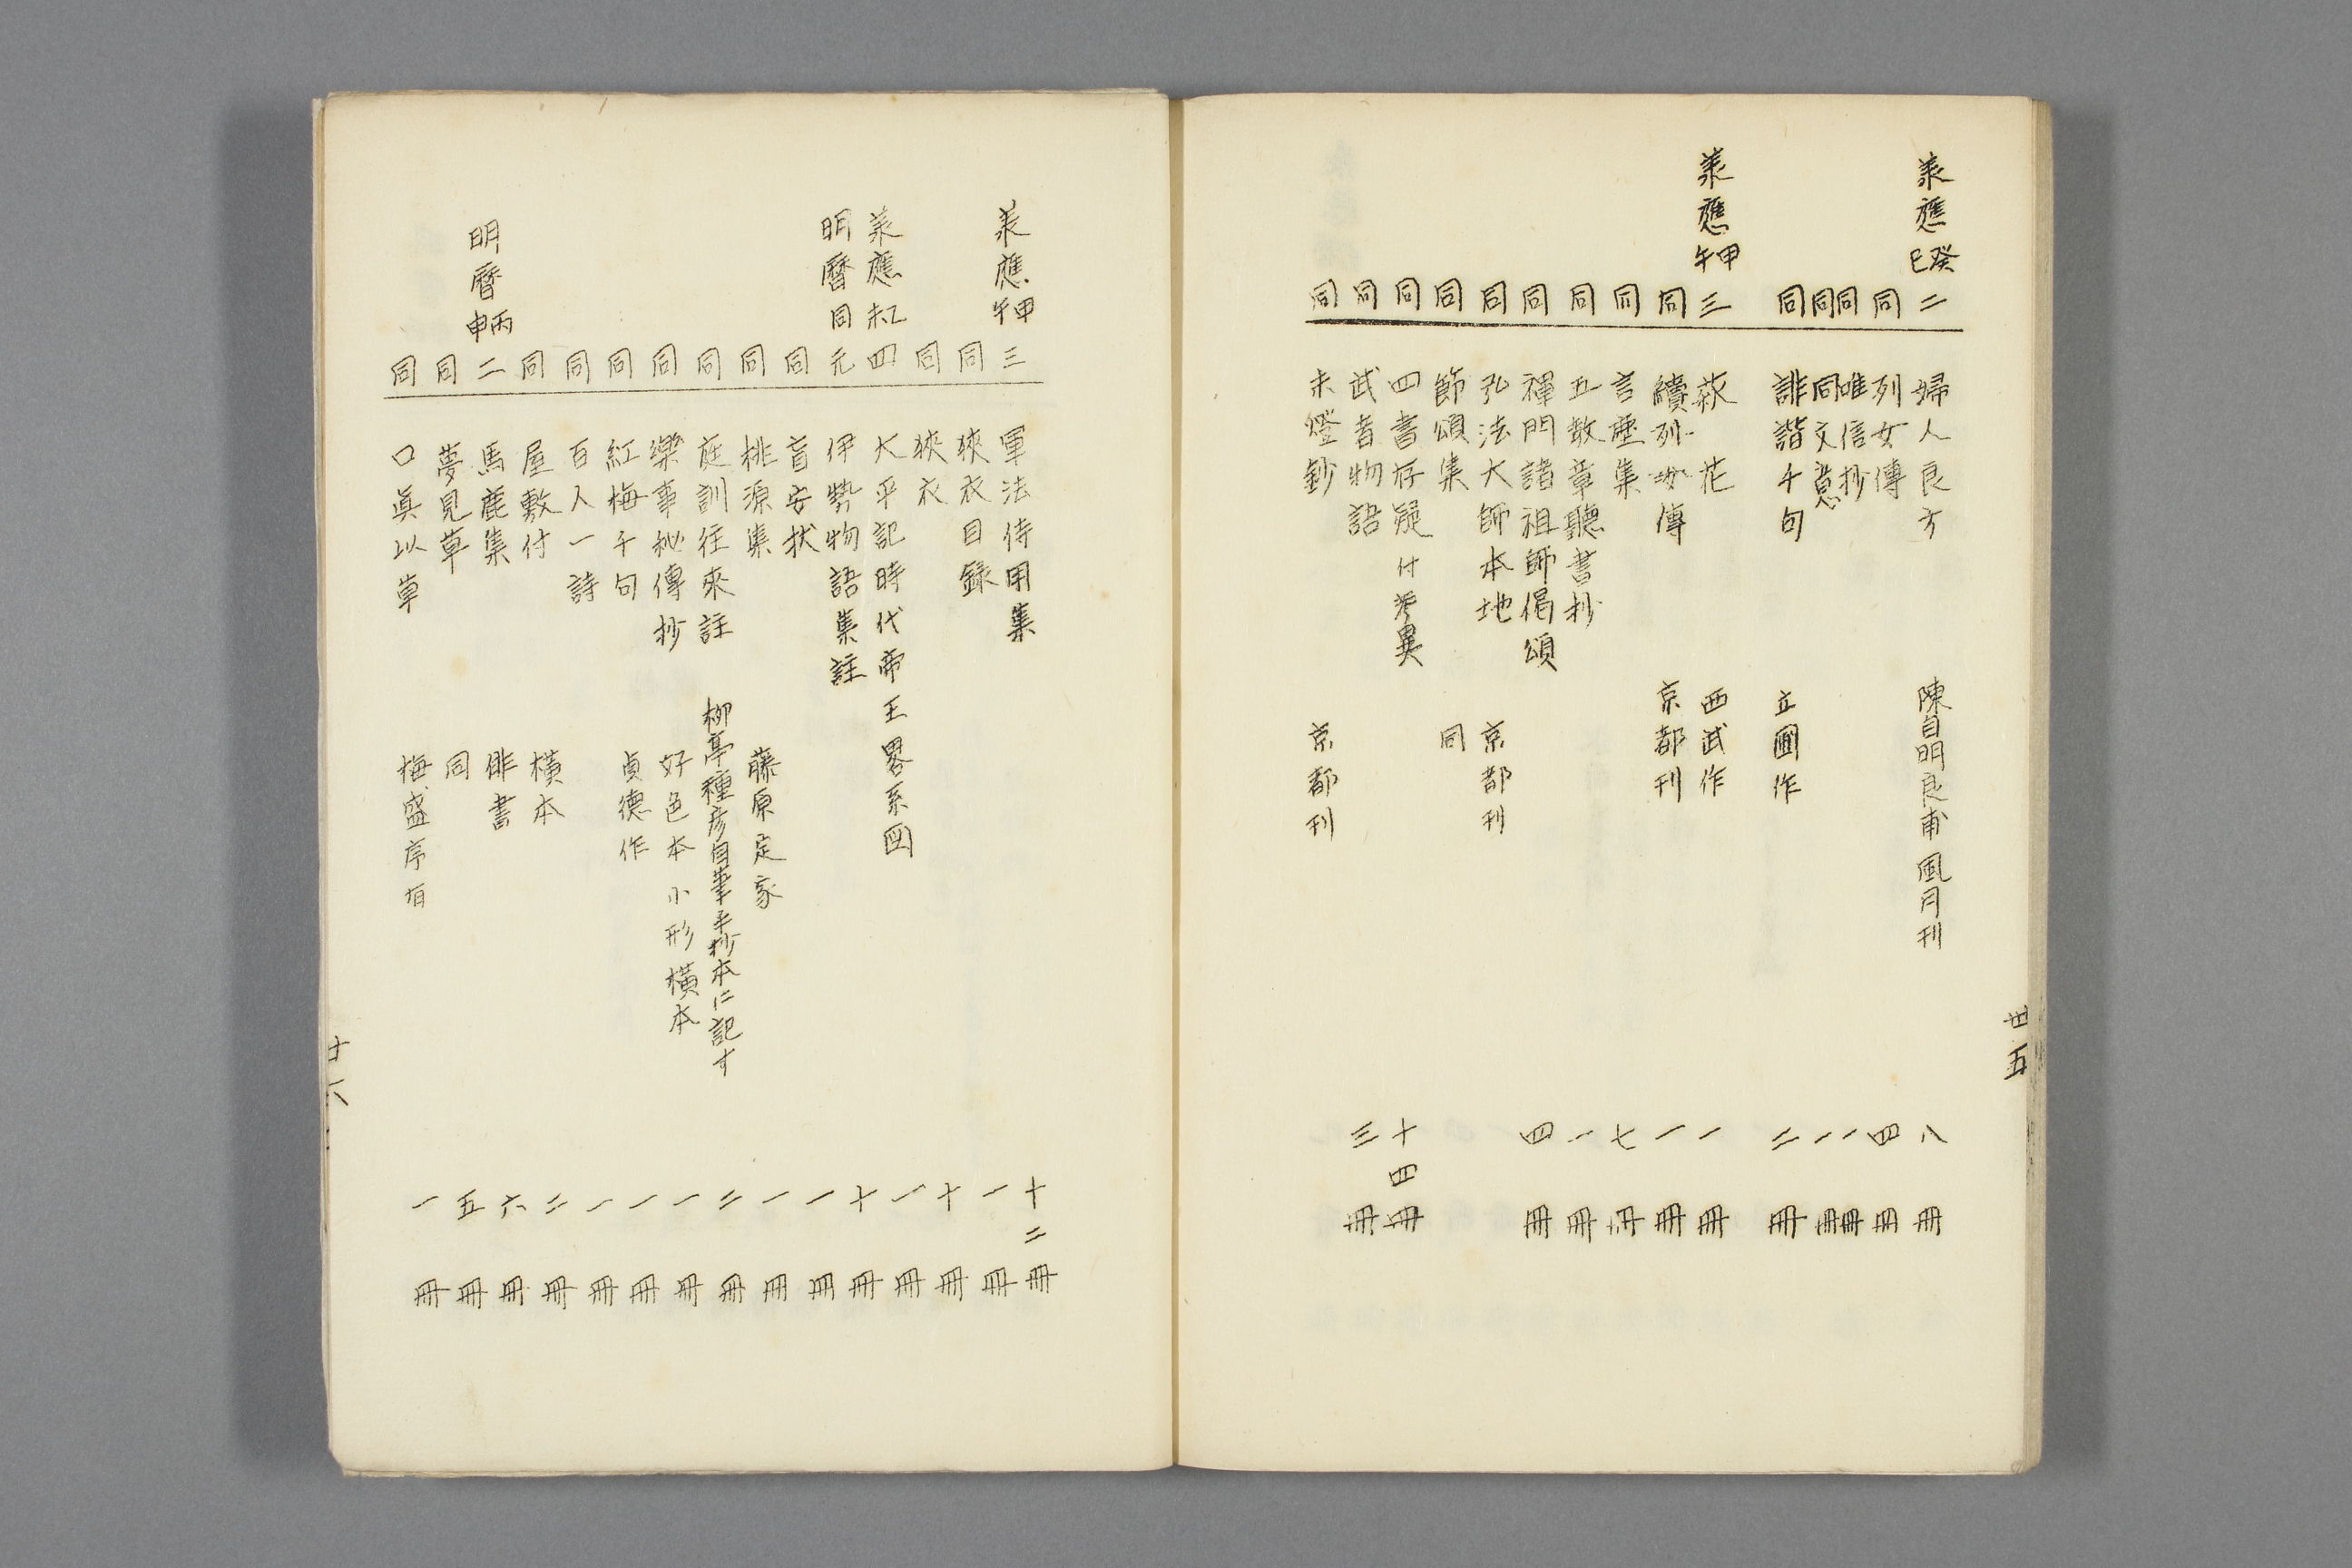 廿五
承應癸巳二 婦人良方 陳自明良甫 風月刊 八冊
同 列女傳 四冊
同 唯信抄 一冊
同 同文意 一冊
同 誹諧千句 立圃作 二冊
承應甲午三 萩花 西武作 一冊
同 續列女傳 京都刊 一冊
同 言塵集 七冊
同 五教章聽書抄 一冊
同 禪門諸祖師偈頌 四冊
同 弘法大師本地 京都刊
同 節頌集 同
同 四書存疑 付考異 十四冊
同 武者物語 三冊
同 末燈鈔 京都刊
承應甲午三 軍法侍用集 十二冊
同 狹衣目録 一冊
同 狹衣 十冊
承應乙未四 大平記時代帝王畧系図 一冊
明暦同元 伊勢物語集註 十冊
同 盲安杖 一冊
同 桃源集 藤原定家 一冊
同 庭訓往來註 柳亭種彦自筆手抄本に記す 二冊
同 樂事秘傳抄 好色本 小形橫本 一冊
同 紅梅千句 貞德作 一冊
同 百人一詩 一冊
同 屋敷付 橫本 二冊
明暦丙申二 馬鹿集 俳書 六冊
同 夢見草 同 五冊
同 口眞似草 梅盛序有 一冊
廿六